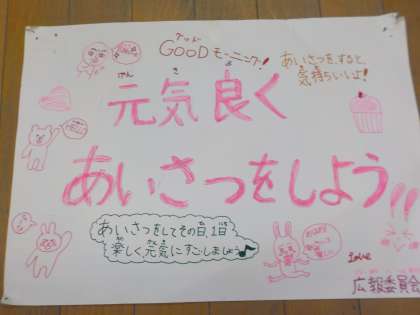 グッド
GOODモーニング!
あいさつをすると
気持ちいいよ!
げん き よ
元気良く
あいさつをしよう!!
あいさつをしてその日1日
楽しく元気にすごしましょう♪
広報委員会